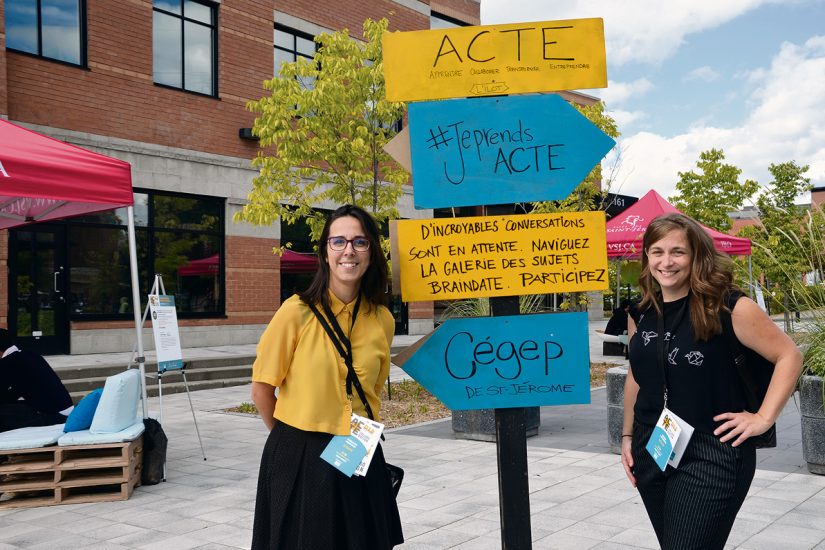 ACTE
APPRENDRE COLLABORER TRANSFORMER ENTREPRENDRE
L'ÎLOT
#Jeprends
ACTE
D'INCROYABLES CONVERSATIONS
SONT EN ATTENTE. NAVIGUEZ
LA GALERIE DES SUJETS
BRAINDATE. PARTICIPEZ
Cégep
DE ST-JÉRÔME
161